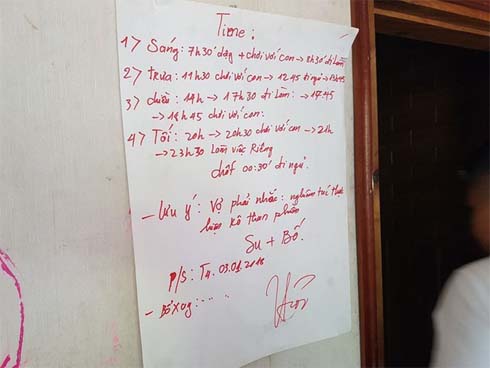 Time:
1> Sáng: 7h30 dậy + chơi với con → 8h30 đi làm
2> trưa: 11h30 chơi với con → 12.45 đi ngủ → 13h45
3> chiều: 14h → 17h30 đi làm: → 17.45
→ 19h45 chơi với con:
4> Tối: 20h → 20h30 chơi với con → 21h
→ 23h30 Làm việc Riêng
chốt 00:30' đi ngủ.
- Lưu ý: Vợ phải nhắc: nghiêm túc thực
hiện kô than phiền
Su + Bố.
P/S: T4. 03.01.2018
- Bổ xung: